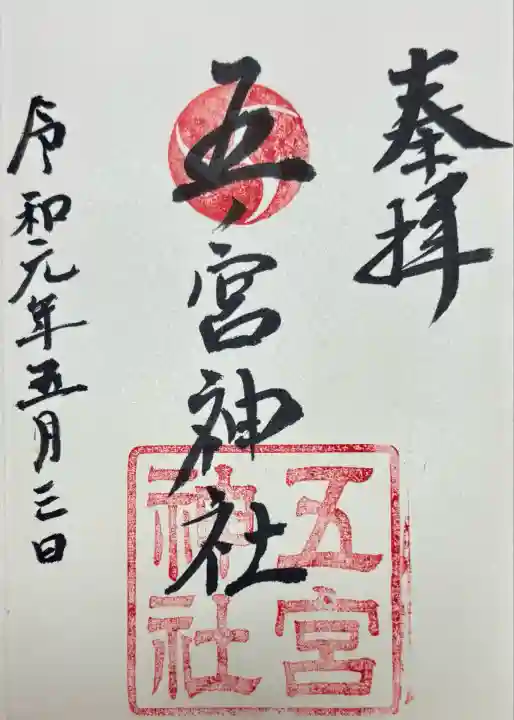 奉拝
五ノ宮神社
令和元年五月三日
五宮
神社